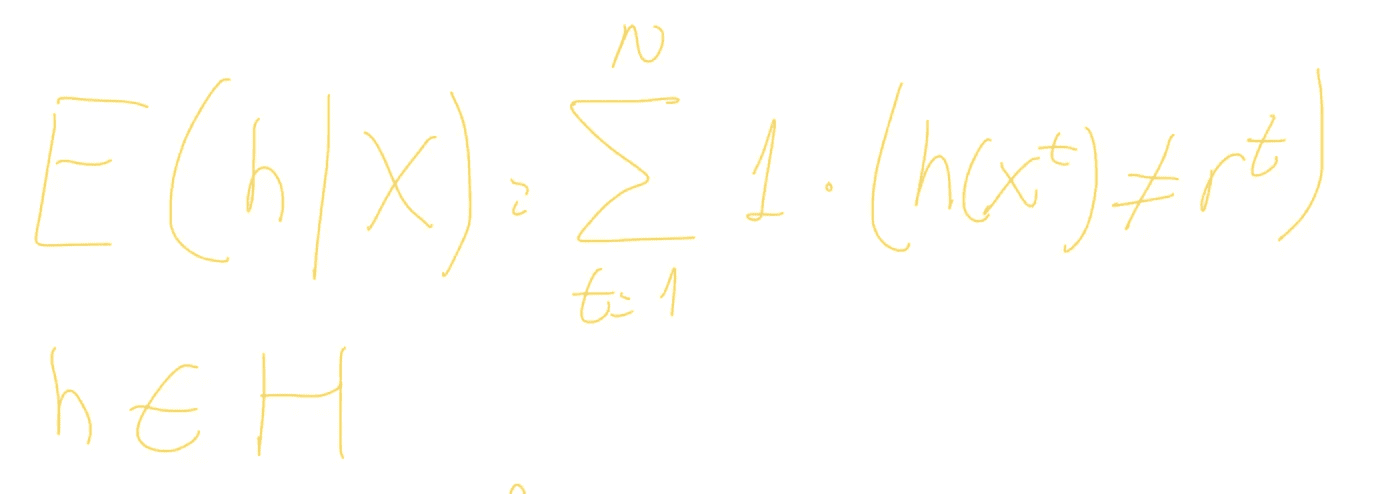 E(h|X) = \sum_{t=1}^{N} 1 · (h(x^t) ≠ r^t)
h ∈ H